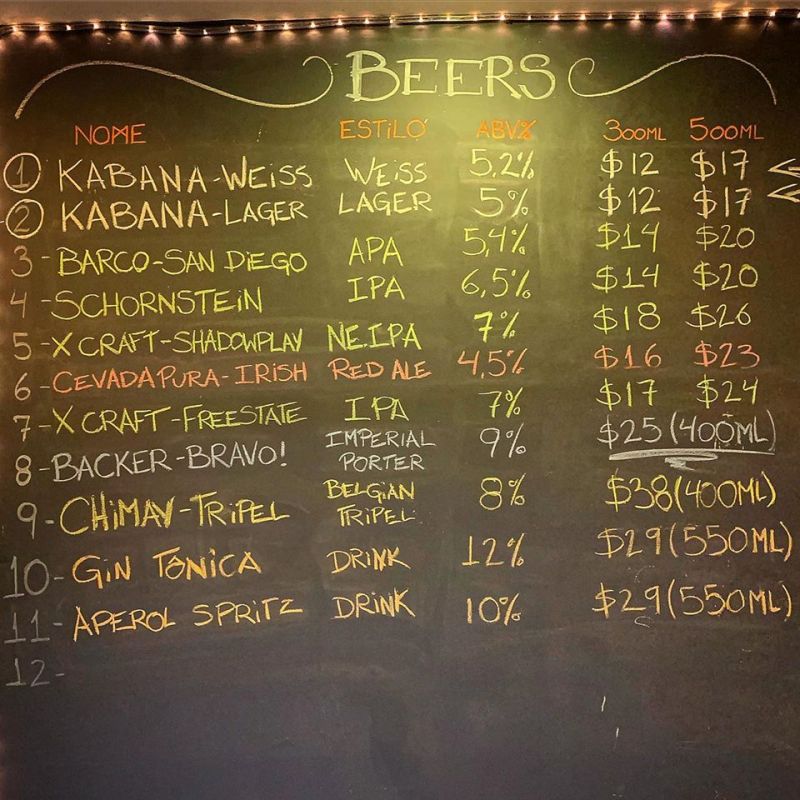 BEERS
NOME ESTILO ABV% 300ML 500ML
1 KABANA-WEISS WEISS 5.2% $12 $17
2 KABANA-LAGER LAGER 5% $12 $17
3-BARCO-SAN DIEGO APA 5,4% $14 $20
4-SCHORNSTEIN IPA 6,5% $14 $20
5-X CRAFT-SHADOWPLAY NE.IPA 7% $18 $26
6-CEVADA PURA-IRISH RED ALE 4,5% $16 $23
7-X CRAFT-FREESTATE IPA 7% $17 $24
8-BACKER-BRAVO! IMPERIAL PORTER 9% $25 (400ML)
9-CHIMAY-TRIPEL BELGIAN TRIPEL 8% $38 (400ML)
10-GIN TÔNICA DRINK 12% $29 (550ML)
11-APEROL SPRITZ DRINK 10% $29 (550ML)
12-